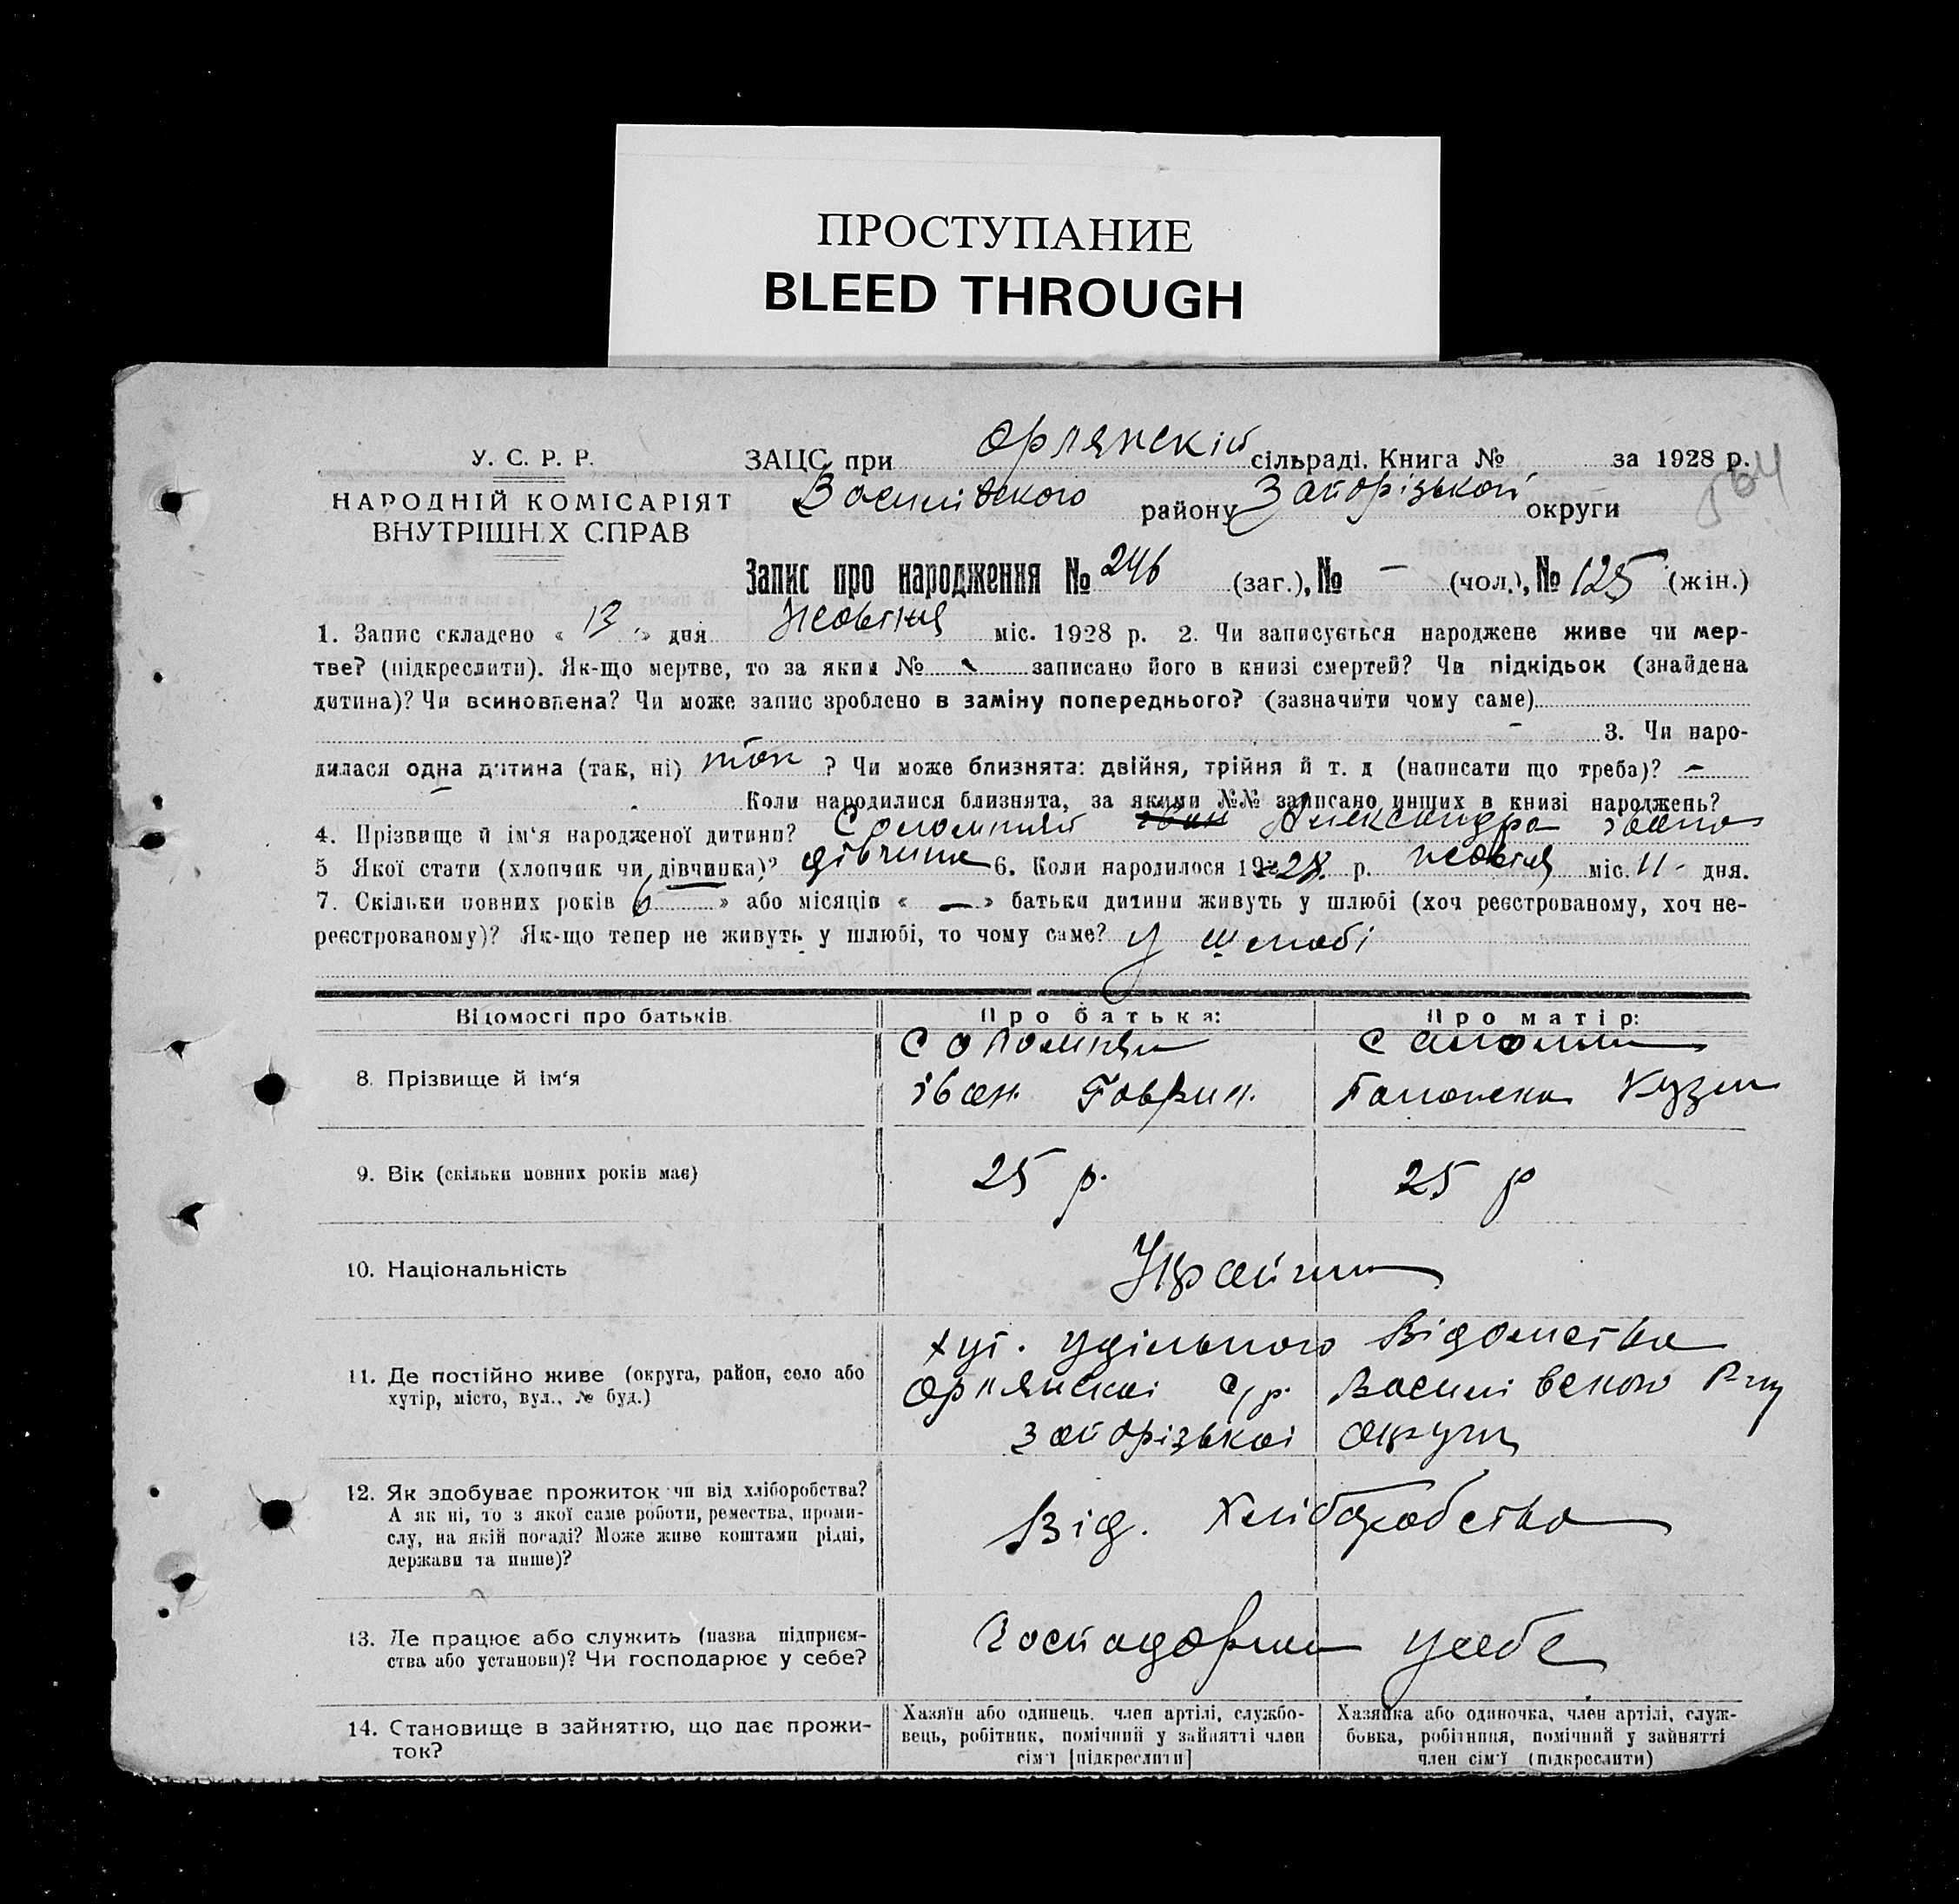 ПРОСТУПАНИЕ
BLEED THROUGH
564
У. С. Р. Р.
НАРОДНІЙ КОМІСАРІЯТ
ВНУТРІШНІХ СПРАВ
ЗАЦС при Орлянскій сільраді. Книга № за 1928 р.
Василівского району Запорізькой округи
Запис про народження № 246 (заг.), № – (чол.), № 125 (жін.)
1. Запис складено « 13 » дня Жовтня міс. 1928 р. 2. Чи записується народжене живе чи мер-
тве? (підкреслити). Як-що мертве, то за яким № записано його в книзі смертей? Чи підкідьок (знайдена
дитина)? Чи всиновлена? Чи може запис зроблено в заміну попереднього? (зазначити чому саме)
– 3. Чи наро-
дилася одна дитина (так, ні) так ? Чи може близнята: двійня, трійня й т. д (написати що треба)? –
– Коли народилися близнята, за якими №№ записано инших в книзі народжень?
4. Прізвище й ім'я народженої дитини? Александра
5 Якої стати (хлопчик чи дівчинка)? 6. Коли народилося 1928. р. жовтня міс. 11 - дня.
7. Скільки повних років « 6 » або місяців « — » батьки дитини живуть у шлюбі (хоч реєстрованому, хоч не-
реєстрованому)? Як-що тепер не живуть у шлюбі, то чому саме? У шлюбі
Відомості про батьків
Про батька:
Про матір:
8. Прізвище й ім'я
іван. Гаврил.
Кузм
9. Вік (скільки повних років має)
25 р.
25 р
10. Національність
11. Де постійно живе (округа, район, село або
хутір, місто, вул., № буд.)
хут. Удільного Відомства
Орлянскоі с/р. Василівского Р-ну
Запорізькоі округи
12. Як здобуває прожиток чи від хліборобства?
А як ні, то з якої саме роботи, ремества, проми-
слу, на якій посаді? Може живе коштами рідні,
держави та инше)?
Від. Хліборобства
13. Де працює або служить (назва підприєм-
ства або установи)? Чи господарює у себе?
у себе
14. Становище в зайняттю, що дає прожи-
ток?
Хазяїн або одинець. член артілі, службо-
вець, робітник, помічний у зайнятті член
сім'ї [підкреслити]
Хазяйка або одиночка, член артілі, служ-
бовка, робітниця, помічний у зайнятті
член сім'ї (підкреслити)